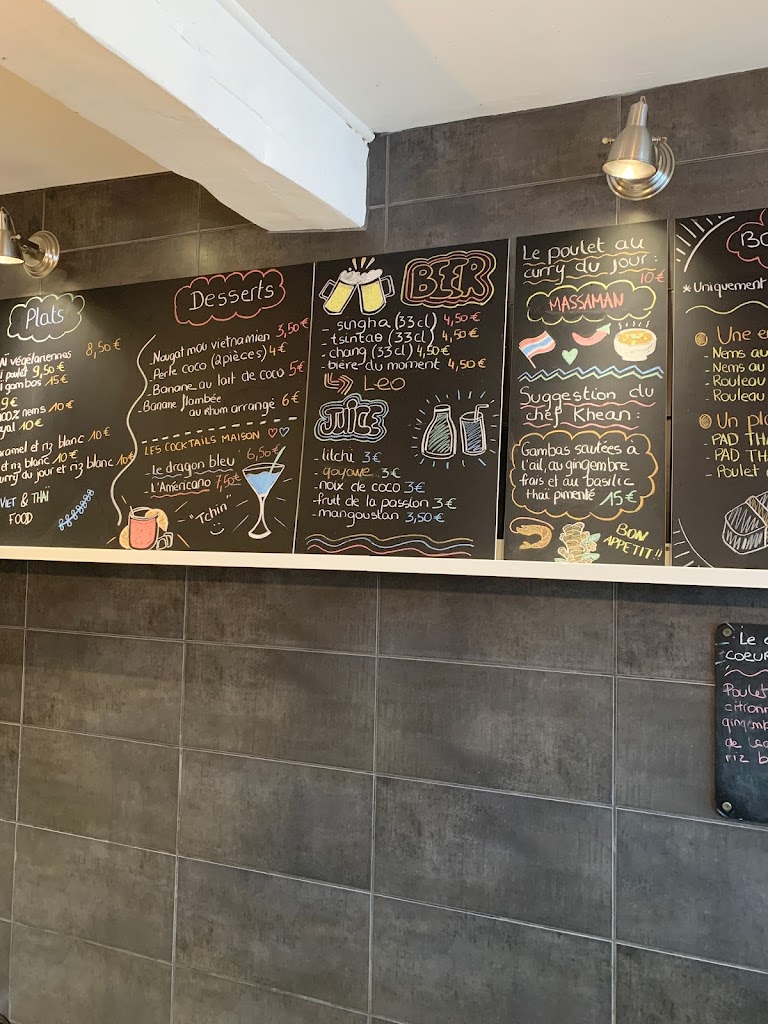 Plats
végétariennes 8,50 €
poulet 9,50 €
gambas 15 €
9 €
100% nems 10 €
10 €
caramel et riz blanc 10 €
et riz blanc 10 €
curry du jour et riz blanc 10 €
VIET & THAI
FOOD
Desserts
- Nougat mou vietnamien 3,50 €
- Perle coco (2 pièces) 4 €
- Banane au lait de coco 5 €
- Banane flambée
au rhum arrangé 6 €
LES COCKTAILS MAISON
- Le dragon bleu 6,50 €
- L'Américano 7,50 €
"Tchin"
BEER
- sungha (33cl) 4,50 €
- tsintao (33cl) 4,50 €
- chang (33cl) 4,50 €
- bière du moment 4,50 €
Leo
JUICE
litchi 3 €
- goyave 3 €
- noix de coco 3 €
- fruit de la passion 3 €
- mangoustan 3,50 €
Le poulet au
curry du jour :
10 €
MASSAMAN
Suggestion du
chef Khean :
Gambas sautées à
l'ail, au gingembre
frais et au basilic
thaï pimenté 15 €
BON
APPETIT !!
* Uniquement
Une
- Nems au
- Nems au
- Rouleau
- Rouleau
Un
- PAD THA
- PAD THA
- Poulet
Le
COEUR
Poulet
de
riz